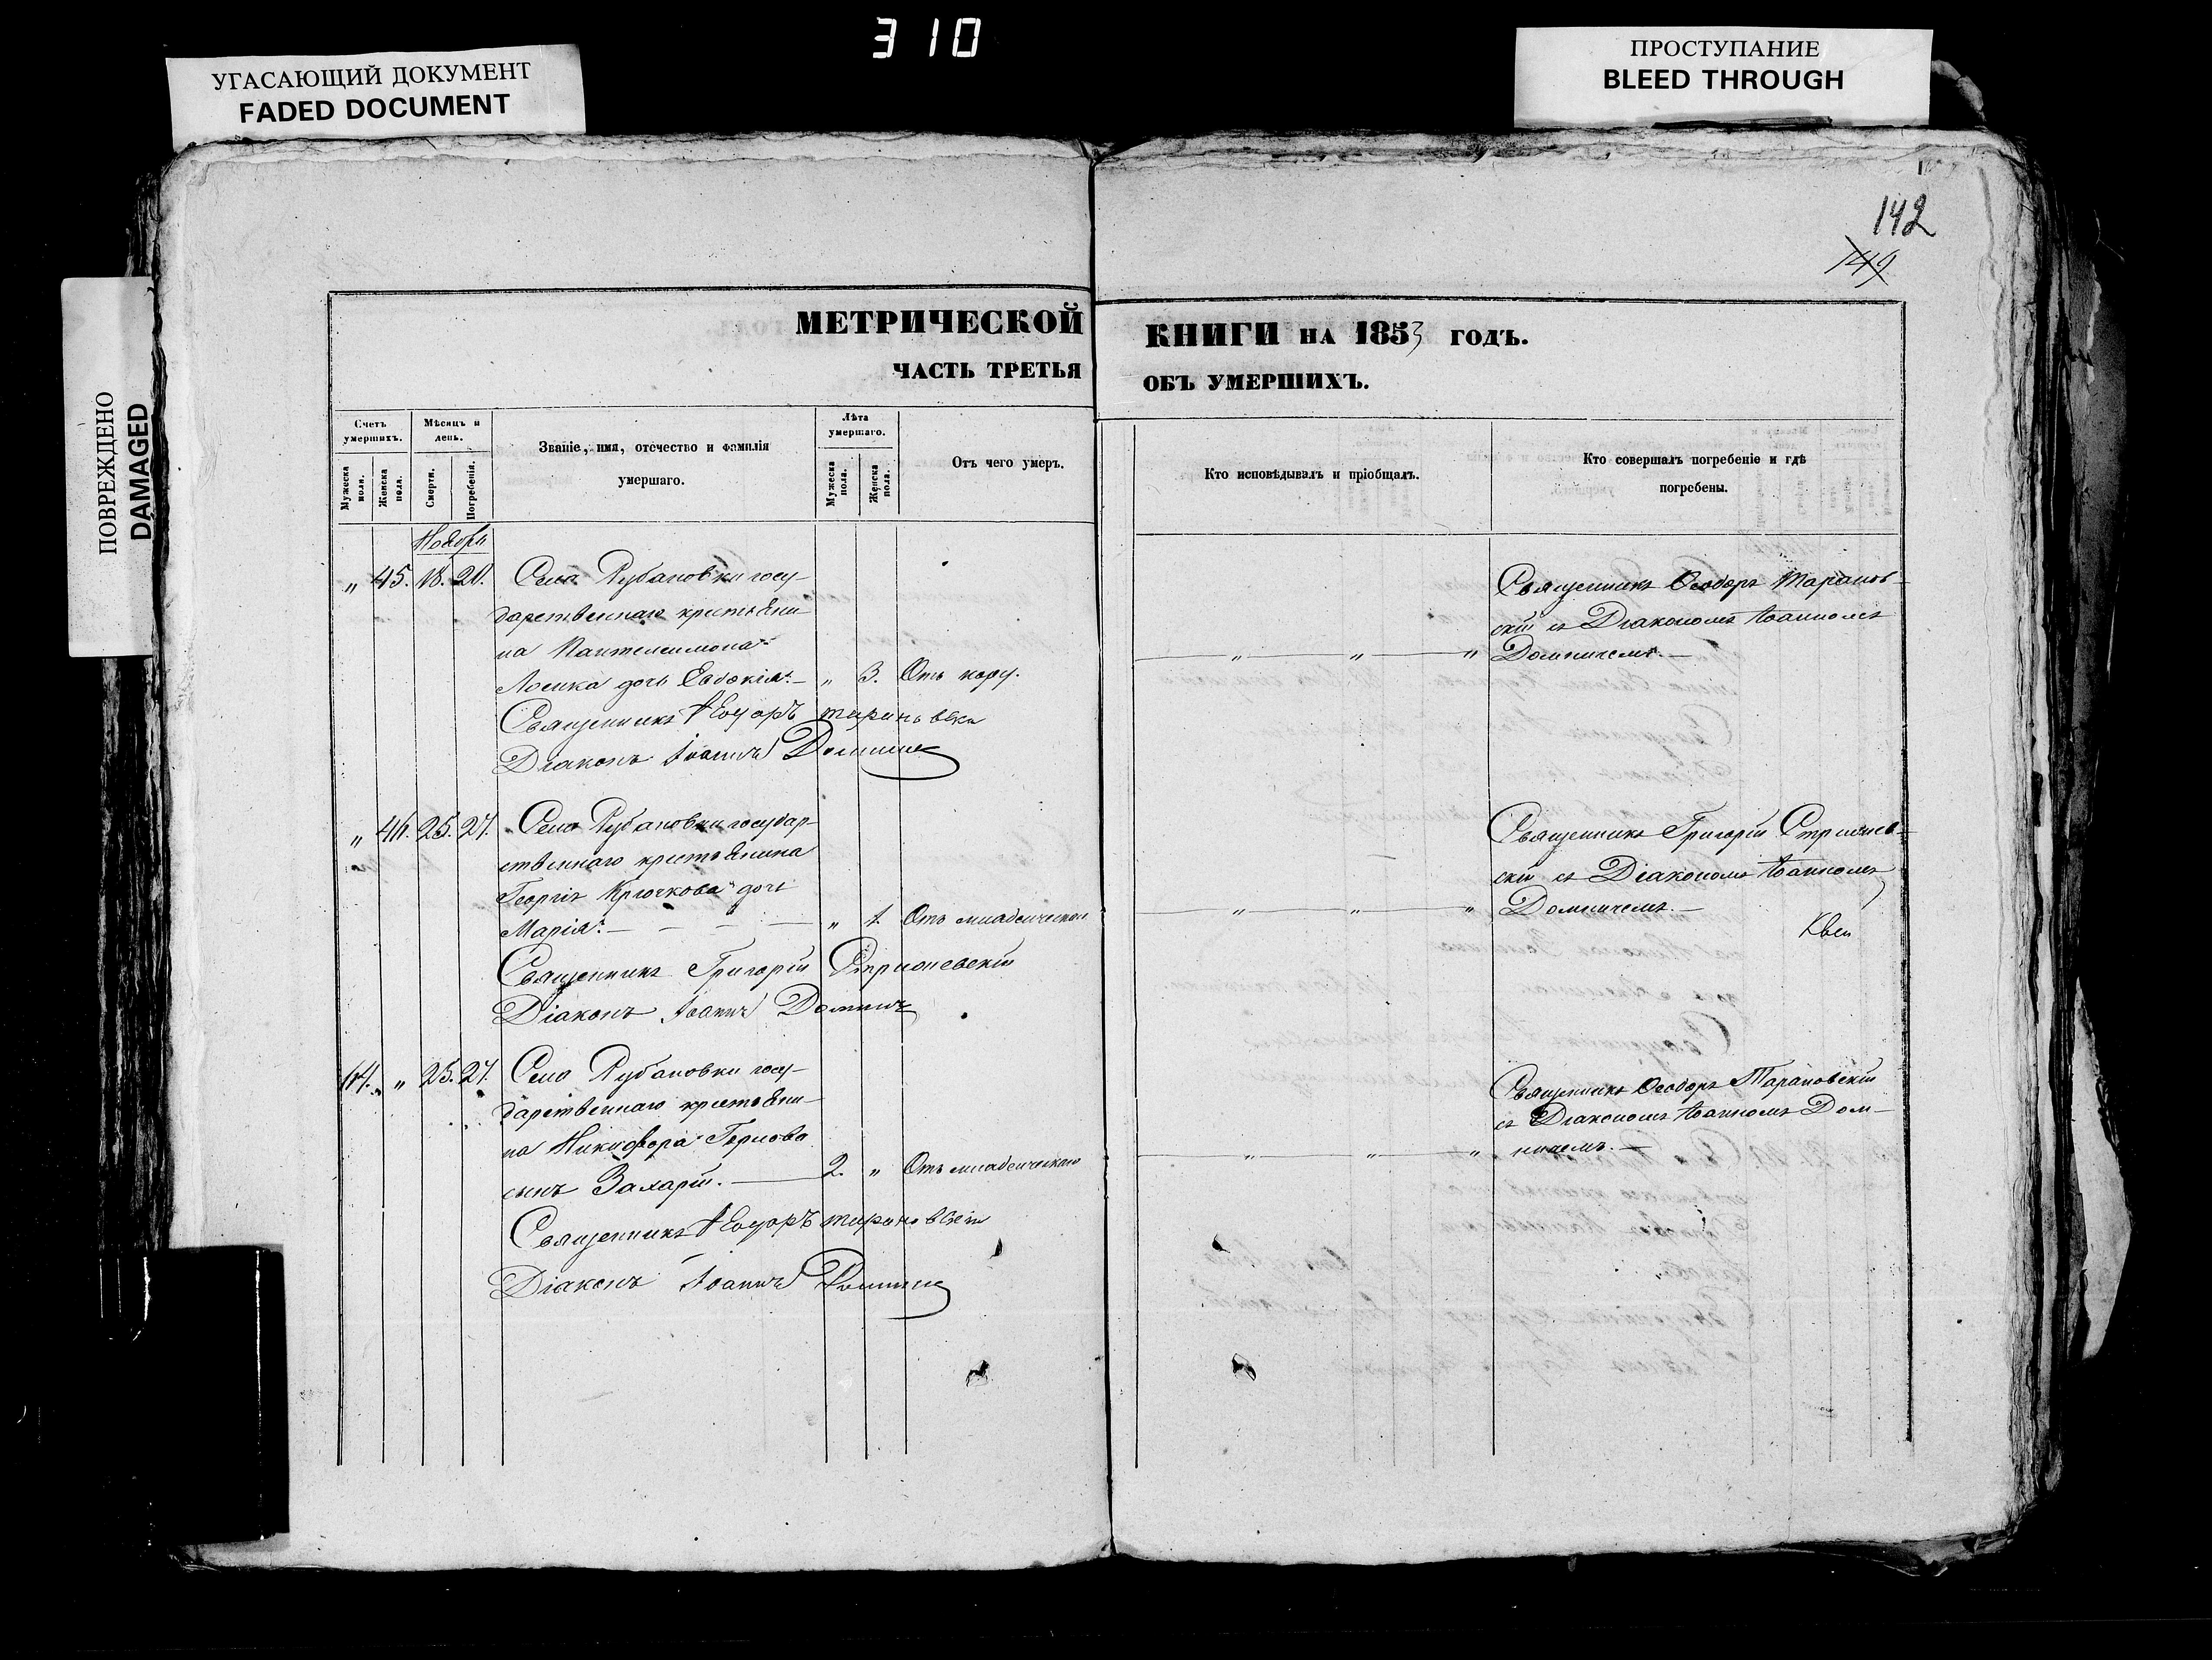 310
УГАСАЮЩИЙ ДОКУМЕНТ
FADED DOCUMENT
ПРОСТУПАНИЕ
BLEED THROUGH
ПОВРЕЖДЕНО
DAMAGED
142
149
МЕТРИЧЕСКОЙ
ЧАСТЬ ТРЕТЬЯ
КНИГИ НА 1853 ГОДЪ.
ОБЪ УМЕРШИХЪ.
Счетъ умершихъ.
Мужеска пола.
Женска пола.
Мѣсяцъ и день.
Смерти.
Погребенія.
Званіе, имя, отечество и фамилія
умершаго.
Лѣта умершаго.
Мужеска пола.
Женска пола.
Отъ чего умеръ.
Кто исповѣдывалъ и пріобщалъ.
Кто совершалъ погребеніе и гдѣ
погребены.
Ноября
„ 45. 18. 20. Села Рубановки госу-
дарственнаго крестьяни-
на Пантелеимона
дочь Евдокія. „ 3. Отъ кору.
Священникъ Ѳеодоръ Тарановскій
Діаконъ Іоаннъ Домнич
Священникъ Ѳеодоръ Таранов-
скій съ Діакономъ Іоанномъ
Домничемъ.
„ 46. 25. 27. Села Рубановки государ-
ственнаго крестьянина
Георгія Крючкова дочь
Марія. „ 1. Отъ младенческой
Священникъ Григорій
Діаконъ Іоаннъ Домничъ
Священникъ Григорій
скій съ Діакономъ Іоанномъ
Домничемъ.
„ 25. 27. Села Рубановки госу-
дарственнаго крестьяни-
на Никифора
сынъ Захарій. 2. „ Отъ младенческой
Священникъ Ѳеодоръ Тарановскій
Діаконъ Іоаннъ Домнич
Священникъ Ѳеодоръ Тарановскій
съ Діакономъ Іоанномъ Дом-
ничемъ.